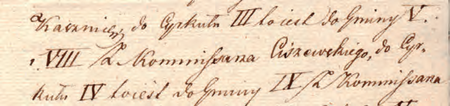 do Cyrkułu III to iest do Gminy V.
i VIII JP. Kommissarza Ciszewskiego, do Cyr-
kułu IV to iest do Gminy IX JP. Kommissarza